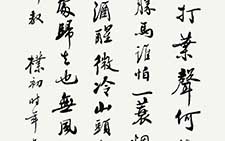 打葉聲何
勝馬誰怕一蓑煙
酒醒微冷山頭
處歸去也無風
教 樸初時年